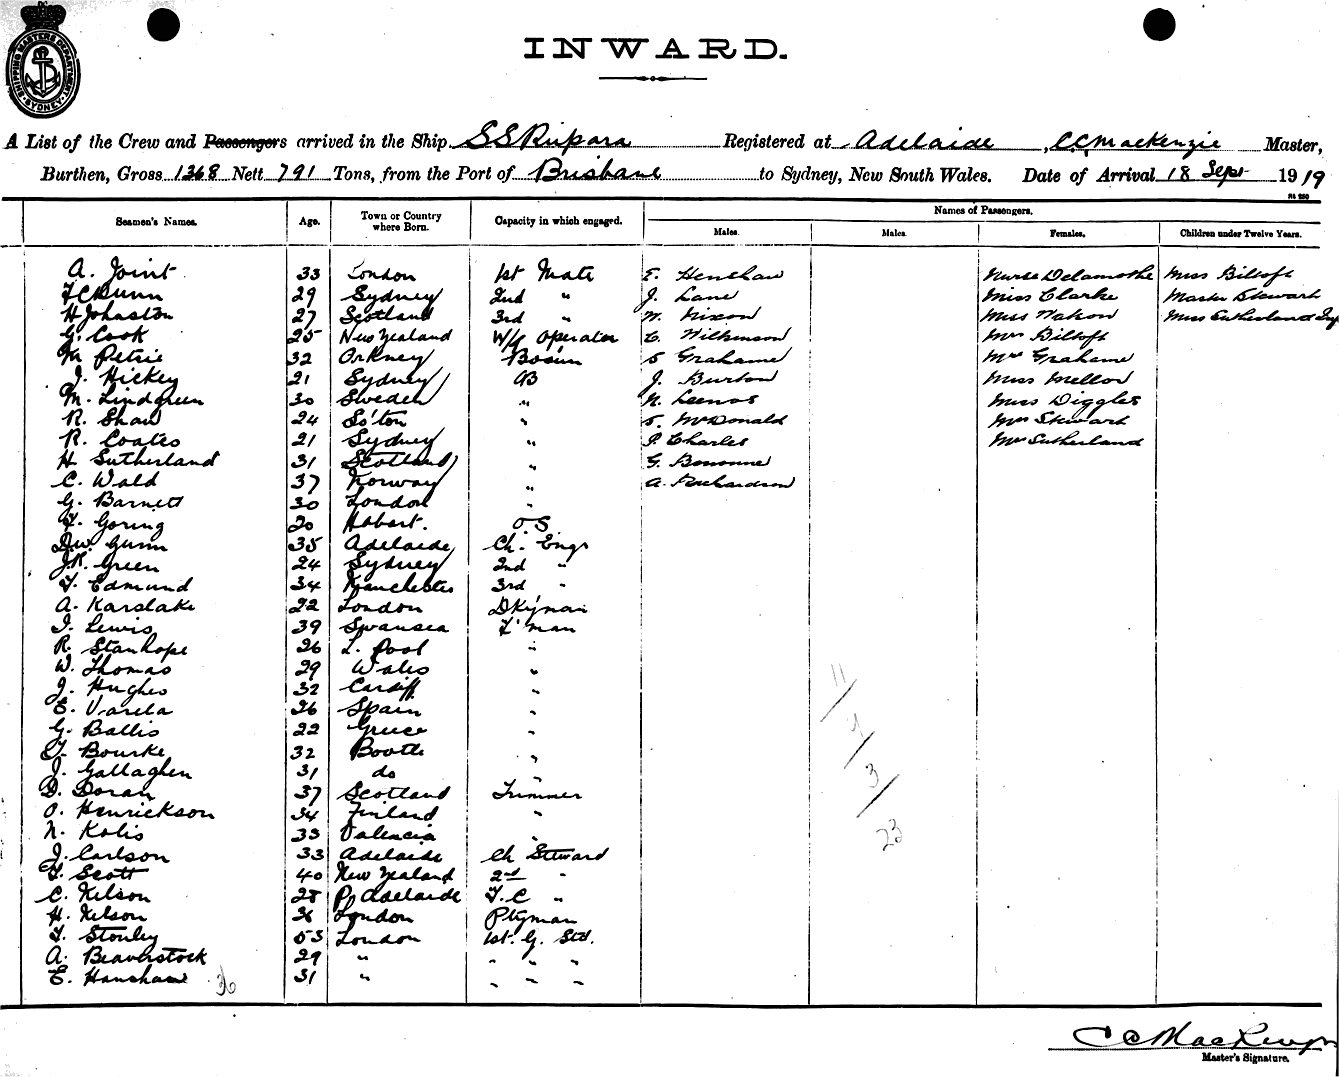 SHIPPING MASTERS DEPARTMENT SYDNEY
INWARD.
A List of the Crew and Passengers arrived in the Ship SS Rupara Registered at Adelaide, C.C. Mackenzie Master,
Burthen, Gross 1368 Nett 791 Tons, from the Port of Brisbane to Sydney, New South Wales. Date of Arrival 18 Sept 1919
Seamen's Names. Age. Town or Country where Born. Capacity in which engaged. Names of Passengers.
Males. Males. Females. Children under Twelve Years.
A. Joint 33 London 1st Mate E. Henshaw Nurse Delamothe Miss Biltoft
F C Dunn 29 Sydney 2nd " J. Lane Miss Clarke Master Stewart
H Johnston 27 Scotland 3rd " W. Nixon Miss Mahon Miss Sutherland Inf
G. Cook 25 New Zealand W/G Operator C. Wilkinson Mrs Biltoft
M. Petrie 32 Orkney Bosun S Grahame Mrs Grahame
J. Hickey 21 Sydney AB J. Burton Miss Mellor
M. Lindgreen 30 Sweden " N. Leenos Miss Diggles
R. Shaw 24 So'ton " S. McDonald Mrs Stewart
R. Coates 21 Sydney " P. Charles Mrs Sutherland
H Sutherland 31 Scotland " G.
C. Wald 37 Norway " A. Richardson
G. Barnett 30 London "
F. Goring 20 Hobart. O.S.
D.W. Gunn 35 Adelaide Ch. Engr
J.R. Green 24 Sydney 2nd "
F. Edmund 34 Manchester 3rd "
A. Karslake 22 London Dkyman
I. Lewis 39 Swansea F'man
R. Stanhope 26 L. Pool "
W. Thomas 29 Wales "
J. Hughes 32 Cardiff "
E. Varela 26 Spain "
G. Ballis 22 Greece "
T. Bourke 32 Bootle "
J. Gallagher 31 do "
D. Doran 37 Scotland Trimmer
O. Henrickson 34 Finland "
N. Kolis 33 Valencia "
J. Carlson 33 Adelaide Ch Steward
F. Scott 40 New Zealand 2nd "
C. Nelson 28 Pt Adelaide F.C "
H. Nelson 26 London Ptyman
F. Stonley 53 London 1st. G. Std.
A. Beaverstock 29 " " " "
E. Hanshaw 31 " " " "
36
11
9
3
23
C C Mackenzie
Master's Signature.